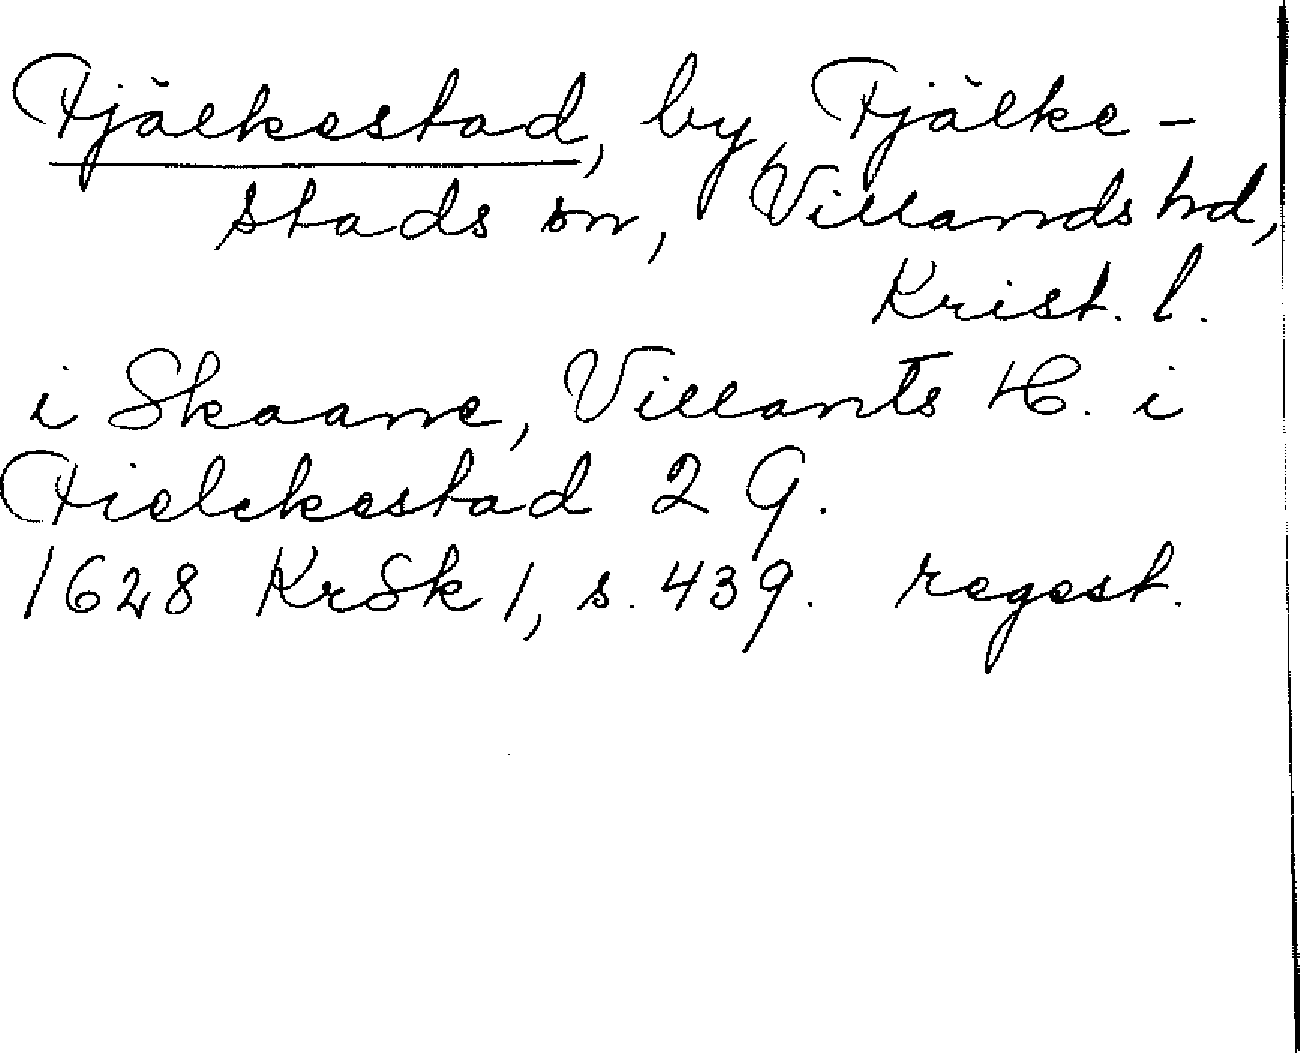 Fjälkestad, by Fjälke-
stads sn, Villands hd,
Krist. l.
i Skaane, Villants H. i
Fielckestad 2 G.
1628 KrSk 1, s. 439. regest.